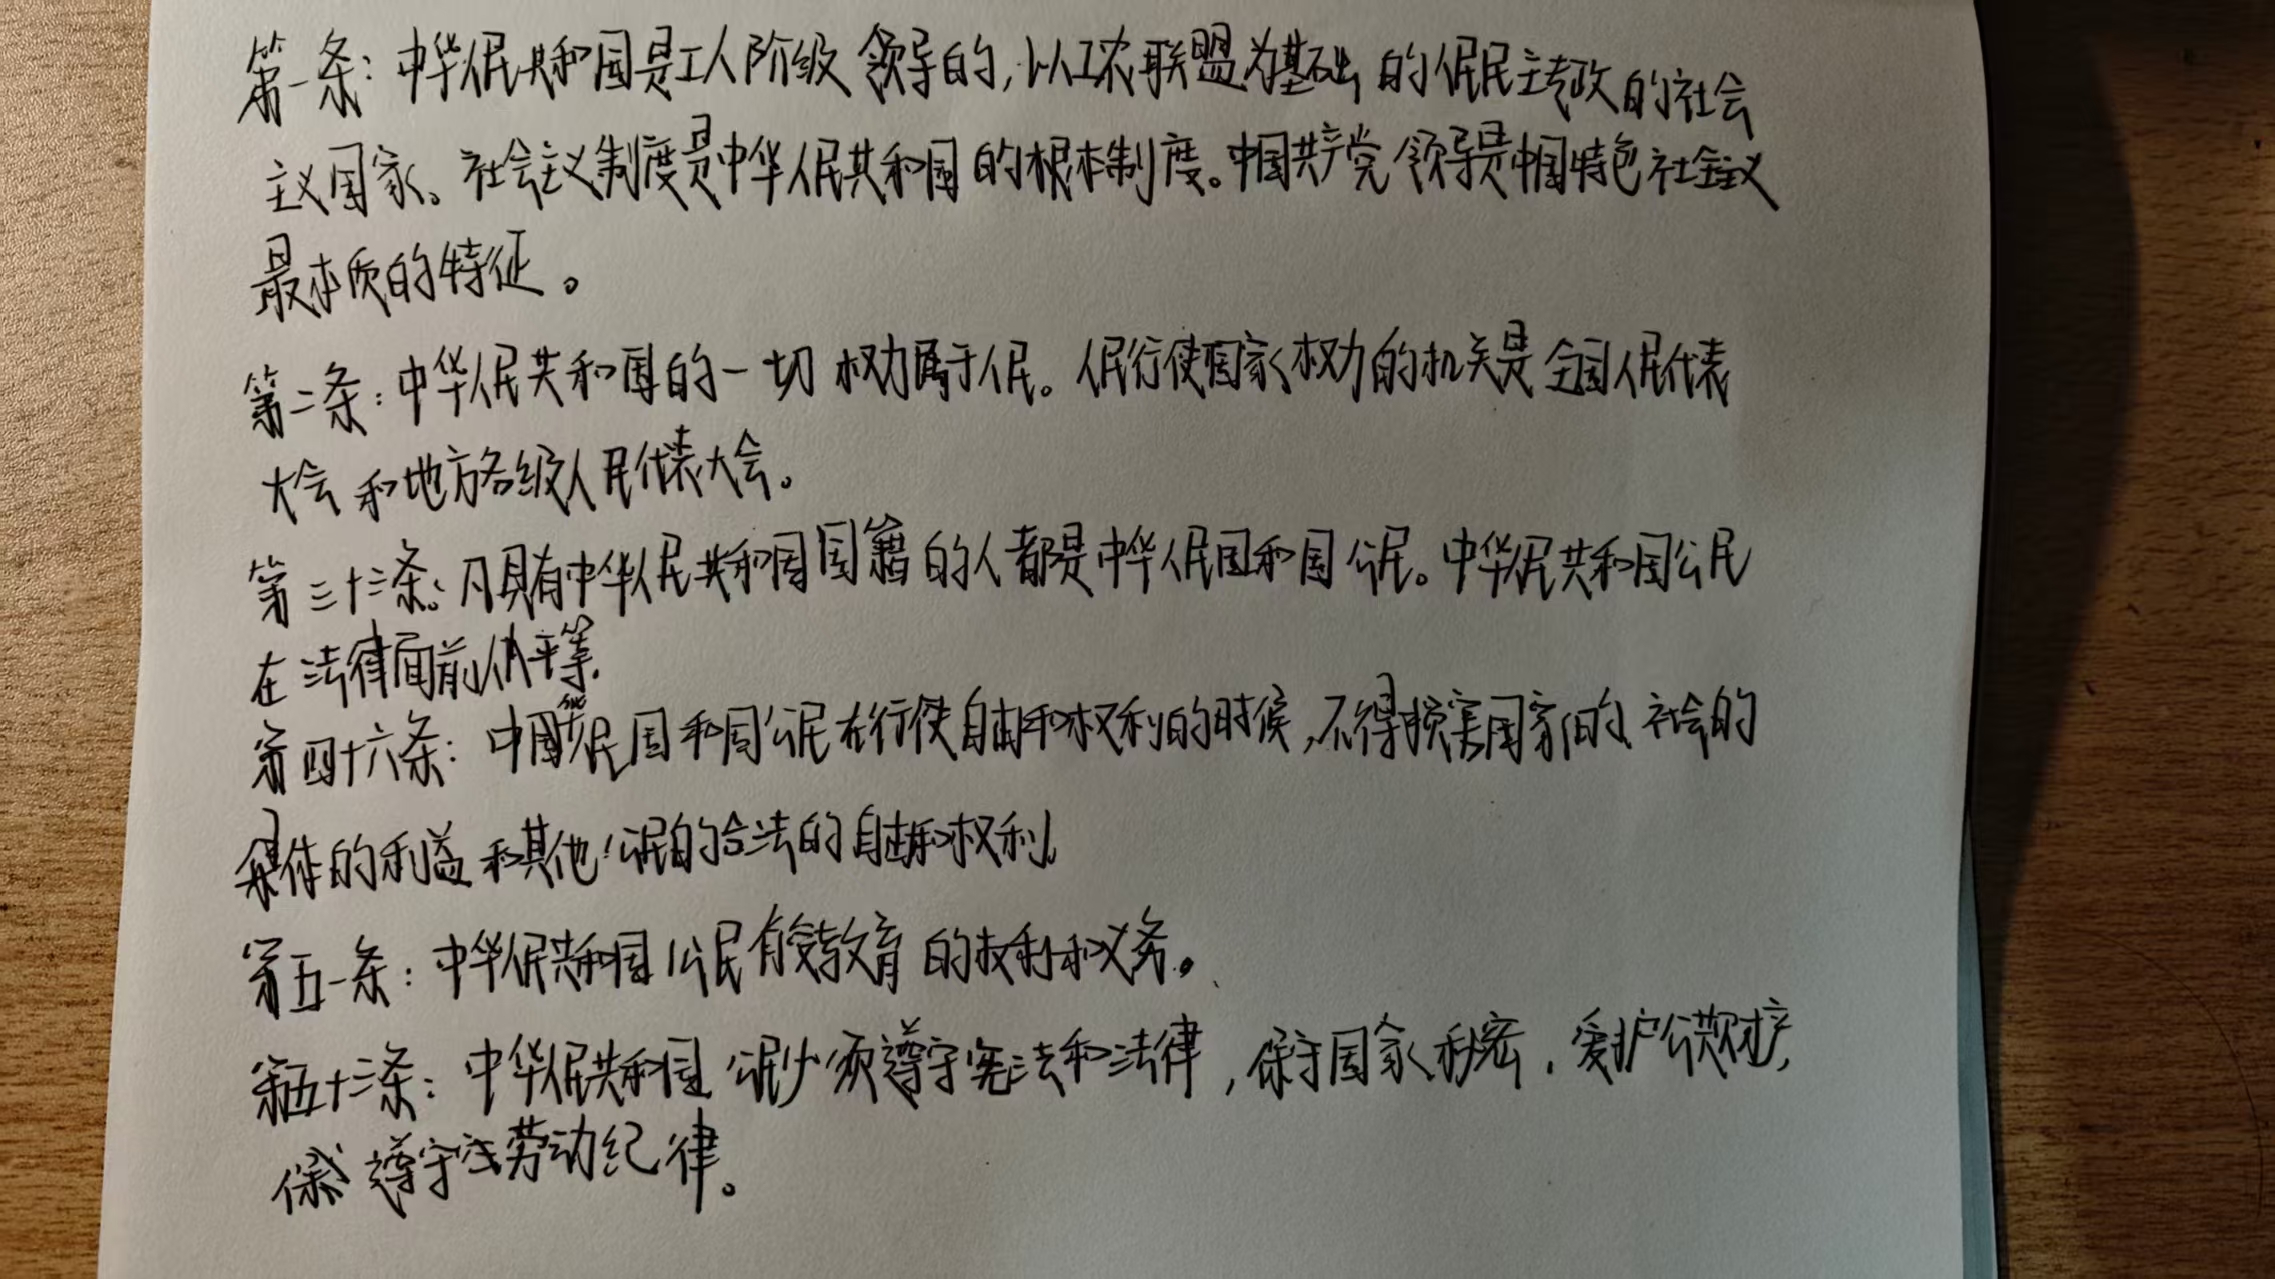 第一条：中华人民共和国是工人阶级领导的，以工农联盟为基础的人民民主专政的社会
主义国家。社会主义制度是中华人民共和国的根本制度。中国共产党领导是中国特色社会主义
最本质的特征。
第二条：中华人民共和国的一切权力属于人民。人民行使国家权力的机关是全国人民代表
大会和地方各级人民代表大会。
第三十三条：凡具有中华人民共和国国籍的人都是中华人民国和国公民。中华人民共和国公民
在法律面前人平等.
第四十六条：中国民国和国公民在行使自由和权利的时候，不得损害国家的、社会的
集体的利益和其他公民的合法的自由和权利。
第五一条：中华人民共和国公民有受教育的权利和义务。
第五十三条：中华人民共和国公民必须遵守宪法和法律，保守国家秘密，爱护公共财产，
遵守劳动纪律。